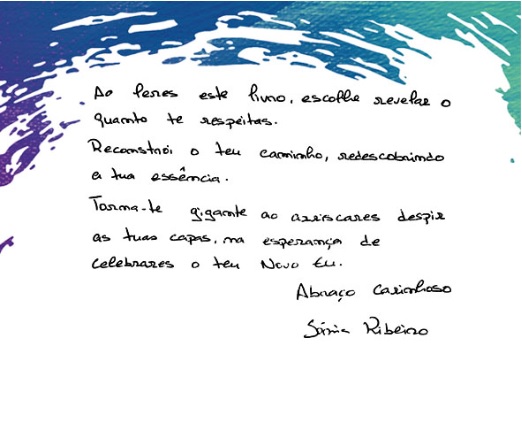 Ao leres este livro, escolhe revelar o
quanto te respeitas.
Reconstrói o teu caminho, redescobrindo
a tua essência.
Torna-te gigante ao arriscares despir
as tuas capas, na esperança de
celebrares o teu Novo Eu.
Abraço Carinhoso
Sónia Ribeiro